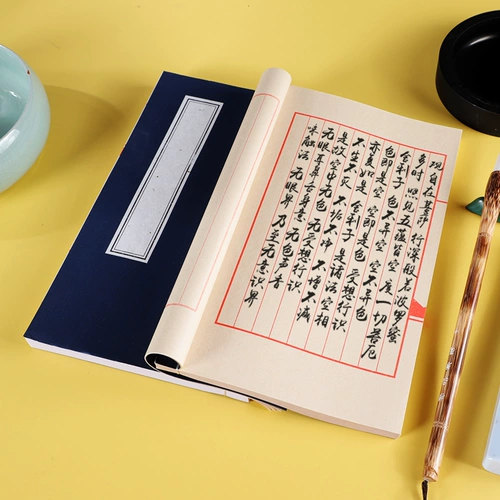 观自在菩萨 行深般若波罗蜜
多时 照见五蕴皆空 度一切苦厄
舍利子 色不异空 空不异色
色即是空 空即是色 受想行识
亦复如是 舍利子 是诸法空相
不生不灭 不垢不净 不增不减
是故空中无色 无受想行识
无眼耳鼻舌身意 无色声香
味触法 无眼界 乃至无意识界